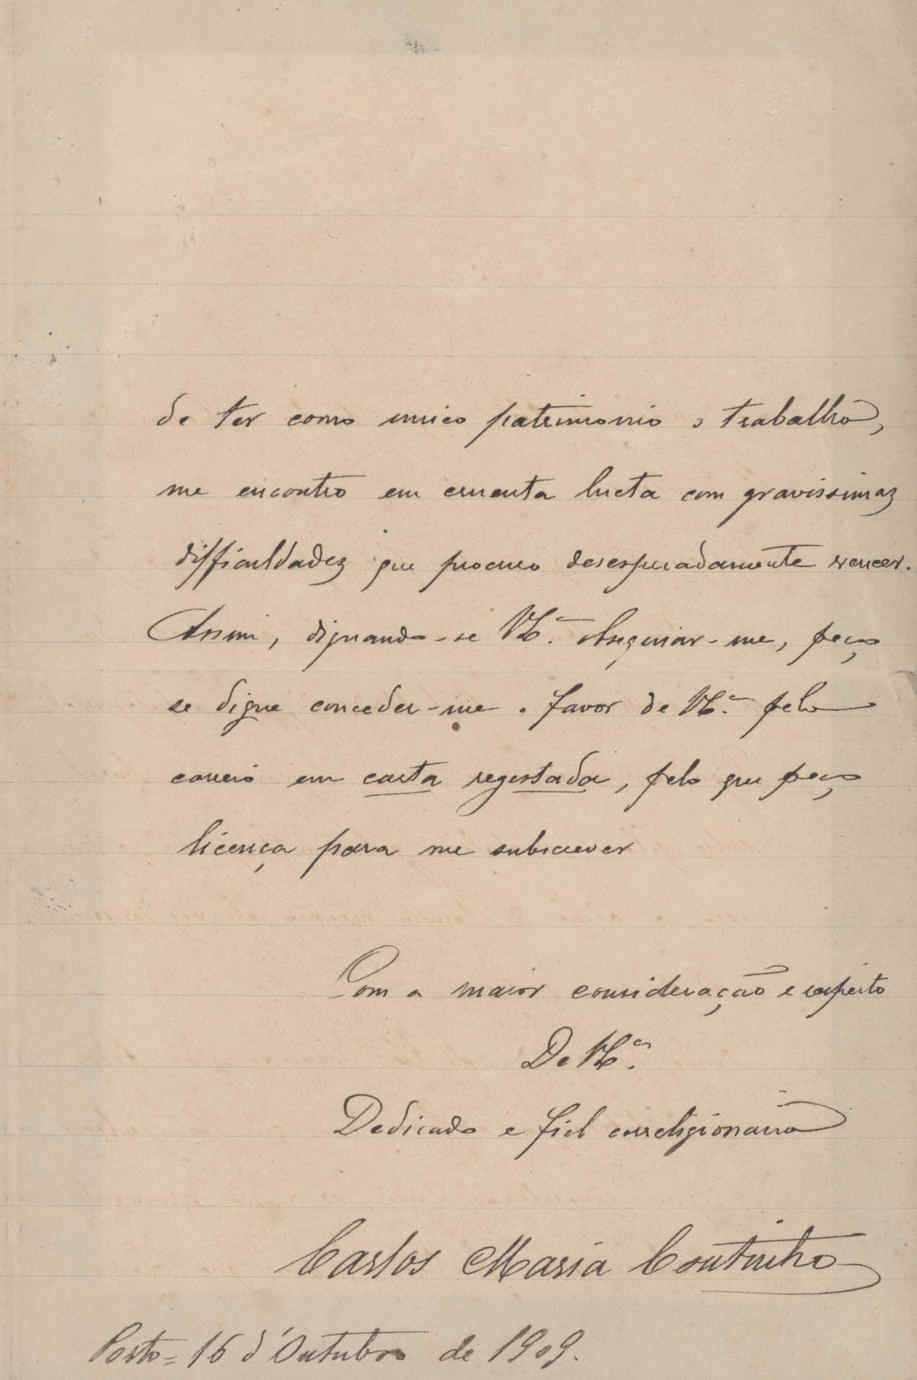 de ter como unico patrimonio o trabalho,
me encontro em cruenta lucta com gravissimas
difficuldades que procuro desesperadamente vencer.
Assim, dignando-se V. Ex.ª obsequiar-me, peço
se digne conceder-me o favor de V. Ex.ª pelo
correio em carta registada, pelo que peço
licença para me subscrever
Com a maior consideração e respeito
De V. Ex.ª
Dedicado e fiel correligionario
Carlos Maria Coutinho
Porto = 16 d'Outubro de 1909.